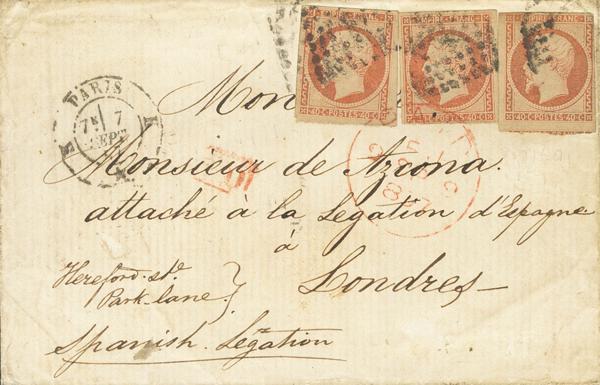 EMPIRE FRANC EMPIRE FRANC EMPIRE FRANC
40 C POSTES 40 C 40 C POSTES 40 C 40 C POSTES 40 C
PARIS
7E 7
SEPT
K K
PD
Monsieur de Azcona.
attaché à la Légation d'Espagne
à
Londres
Hereford. st.
Park-lane
Spanish. Légation